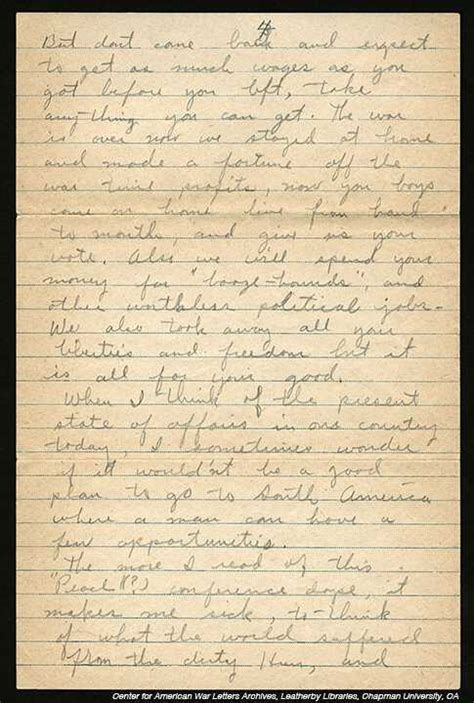 4
But dont come back and expect
to get as much wages as you
got before you left, take
any-thing you can get. The war
is over now we stayed at home
and made a fortune off the
war time profits, now you boys
come on home live from hand
to mouth, and give us your
vote. Also we will spend your
money for "booze-hounds", and
other worthless political jobs-
We also took away all your
liberties and freedom but it
is all for your good.
When I think of the present
state of affairs in our country
today, I sometimes wonder
if it wouldn't be a good
plan to go to South America
where a man can have a
few opportunities.
The more I read of this
"Peace (?) conference dope, it
makes me sick, to-think
of what the world suffered
from the dirty Hun, and
Center for American War Letters Archives, Leatherby Libraries, Chapman University, CA